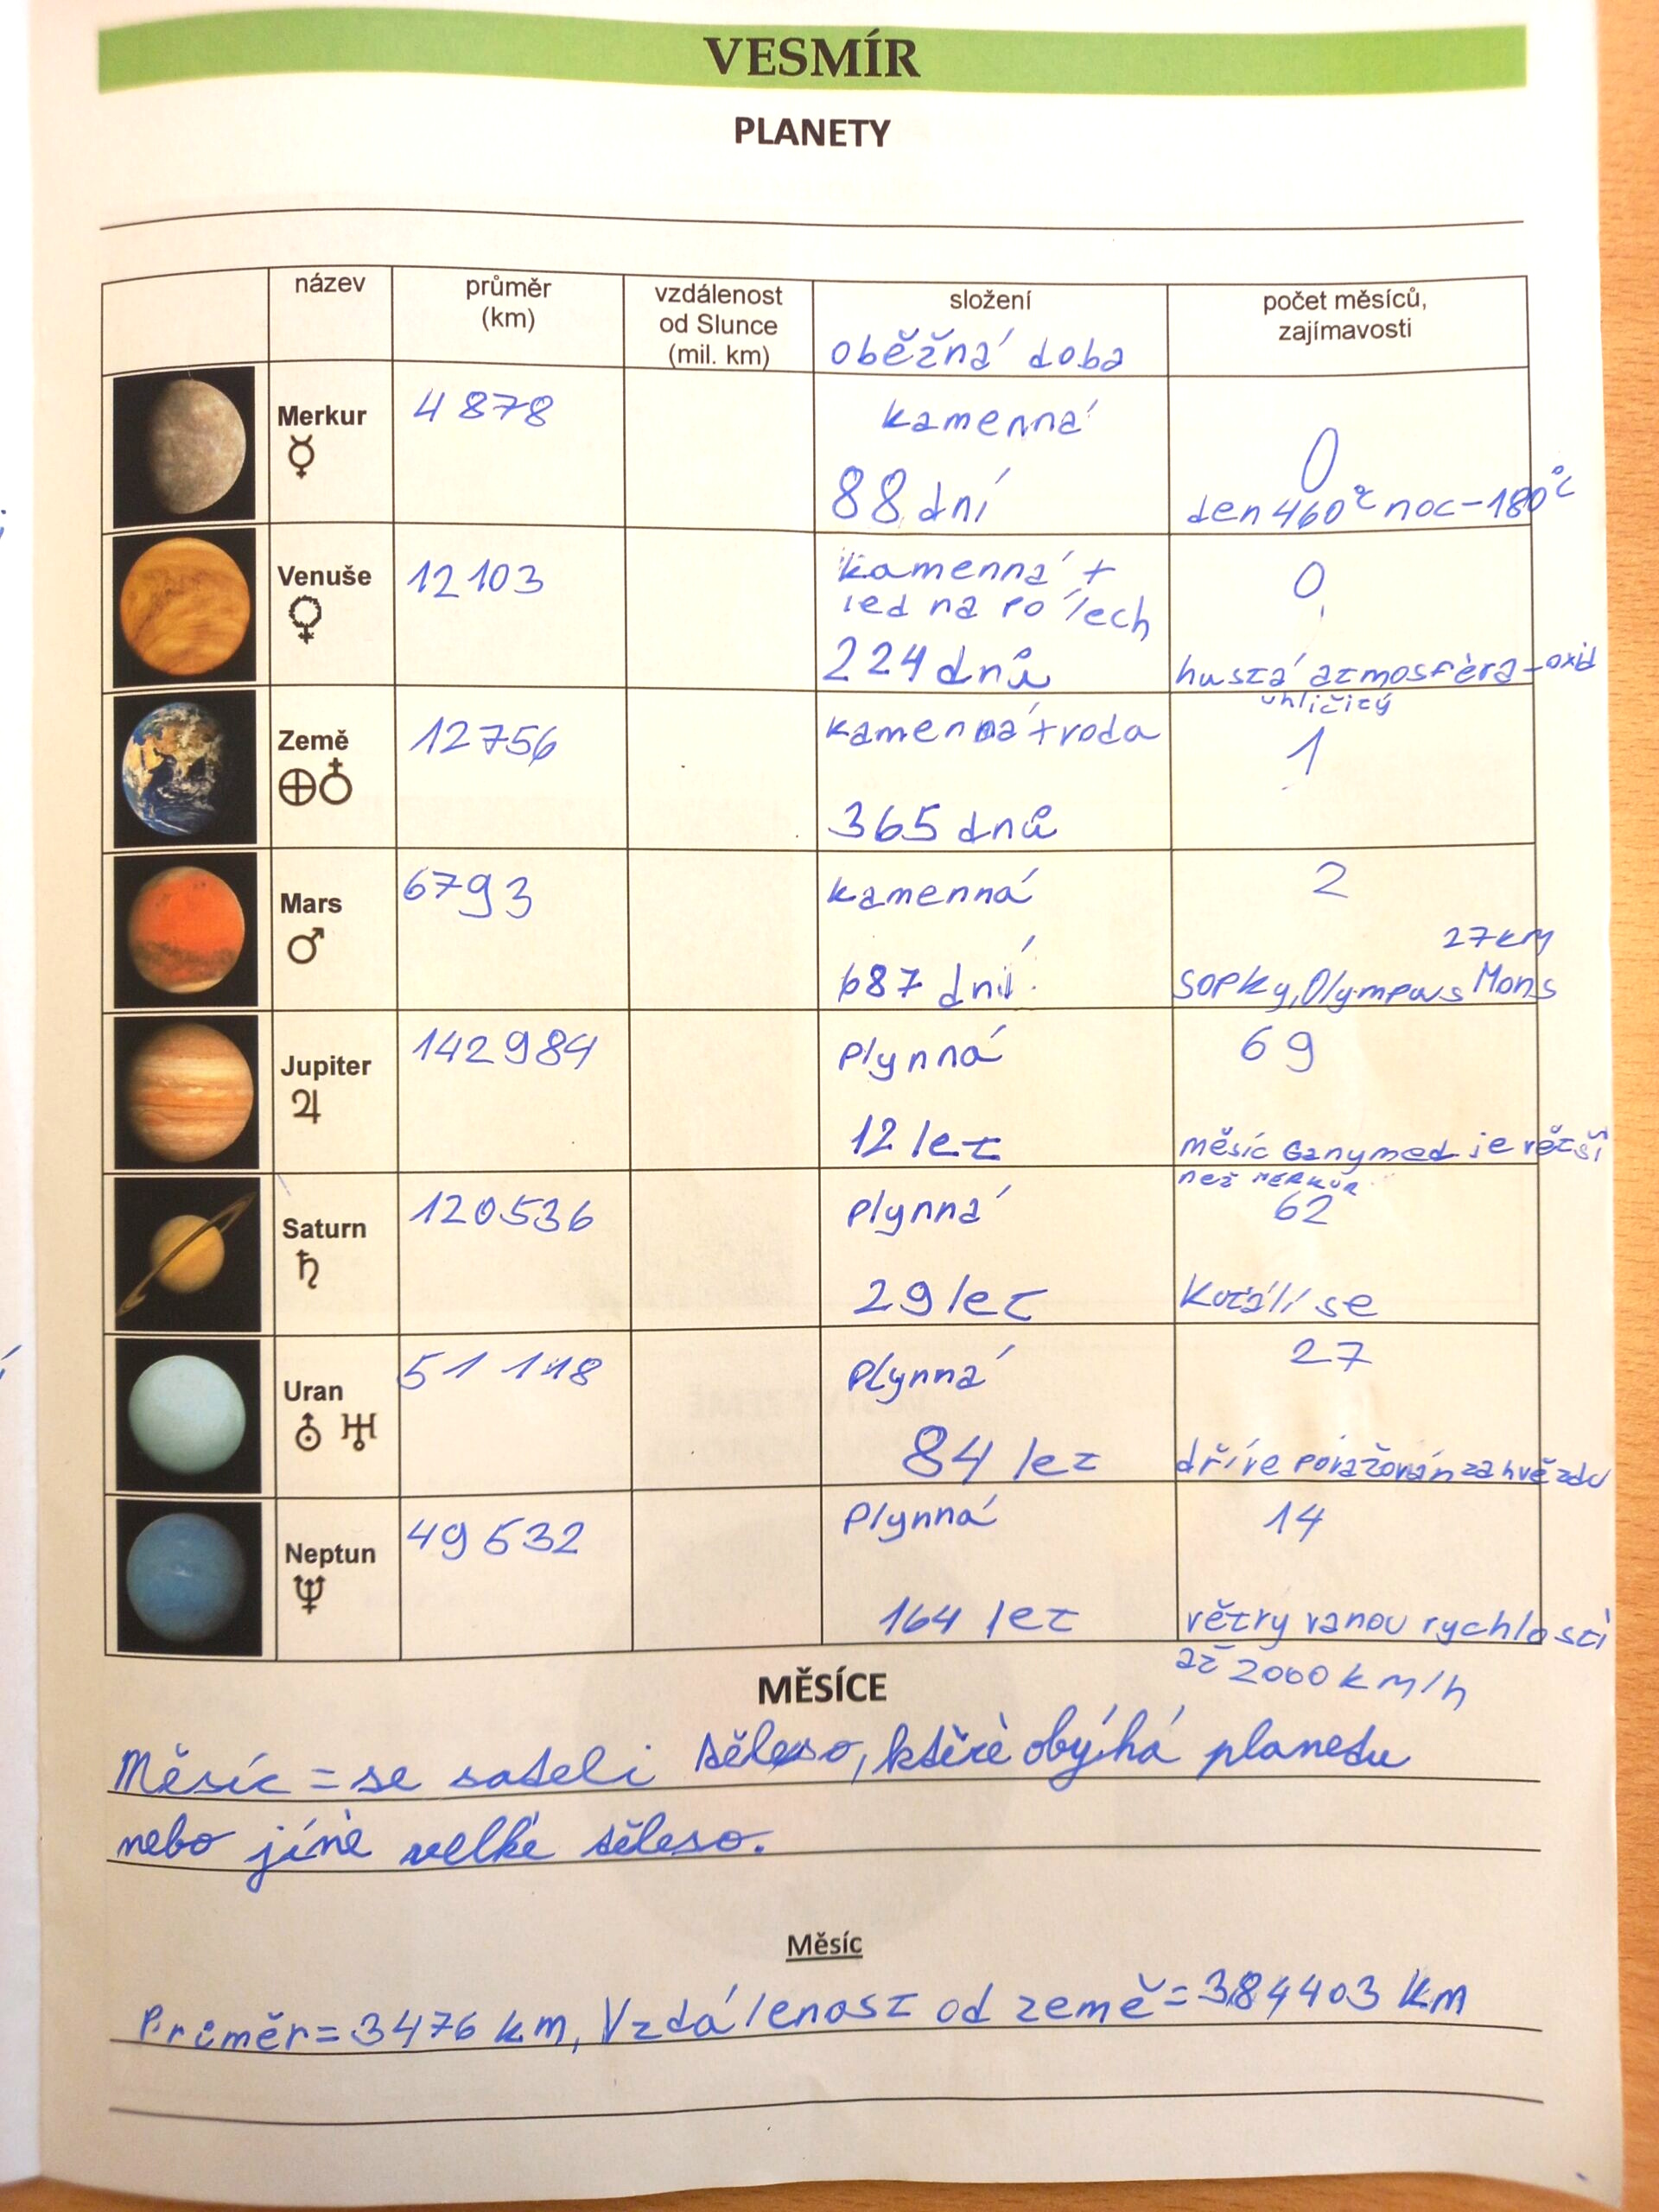 VESMÍR
PLANETY
název
průměr
(km)
vzdálenost
od Slunce
(mil. km)
složení
oběžná doba
počet měsíců,
zajímavosti
Merkur
4 878
kamenná
88 dní
0
den 460°C noc -180°C
Venuše
12 103
kamenná +
led na pólech
224 dnů
0
hustá atmosféra - oxid
uhličitý
Země
12 756
kamenná + voda
365 dnů
1
Mars
6793
kamenná
687 dní
2
27 km
sopky, Olympus Mons
Jupiter
142 984
Plynná
12 let
69
měsíc Ganymed je větší
než MERKUR
Saturn
120 536
Plynná
29 let
62
Kutálí se
Uran
51 118
Plynná
84 let
27
dříve považován za hvězdu
Neptun
49 532
Plynná
164 let
14
větry vanou rychlostí
až 2000 km/h
MĚSÍCE
Měsíc = se sateli těleso, ktěré obýhá planetu
nebo jíné velké těleso.
Měsíc
Průměr = 3476 km, Vzdálenost od země = 384403 km